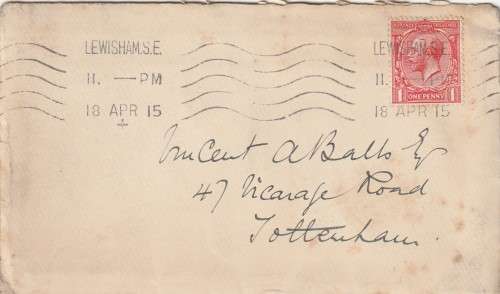 LEWISHAM.S.E.
11. — PM
18 APR 15
LEWISHAM.S.E.
11. — PM
18 APR 15
ONE PENNY
1 1
Vincent A Balls Esq
47 Vicarage Road
Tottenham.